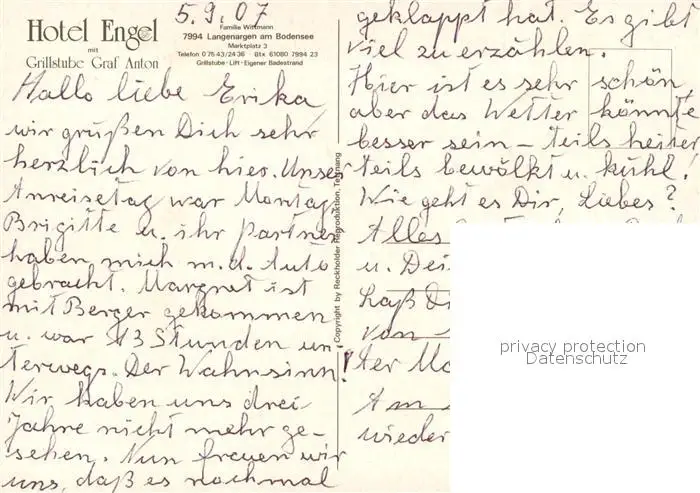 5.9.07
Hotel Engel
mit
Grillstube Graf Anton
Familie Wittmann
7994 Langenargen am Bodensee
Marktplatz 3
Telefon 0 75 43/24 36 Btx 61080 7994 23
Grillstube · Lift · Eigener Badestrand
Hallo liebe Erika,
wir grüßen Dich sehr
herzlich von hier. Unser
Anreisetag war Montag
Brigitte u. ihr Partner
haben mich m. d. Auto
gebracht. Margret ist
mit Berger gekommen
u. war 13 Stunden un-
terwegs. Der Wahnsinn!
Wir haben uns drei
Jahre nicht mehr ge-
sehen. Nun freuen wir
uns, daß es nochmal
Copyright by Reckholder Reproduktion, Tettnang
geklappt hat. Es gibt
viel zu erzählen.
Hier ist es sehr schön,
aber das Wetter könnte
besser sein – teils heiter
teils bewölkt u. kühl!
Wie geht es Dir, Liebes?
Alles
u.
Laß
von
ter
Am
wieder
privacy protection
Datenschutz